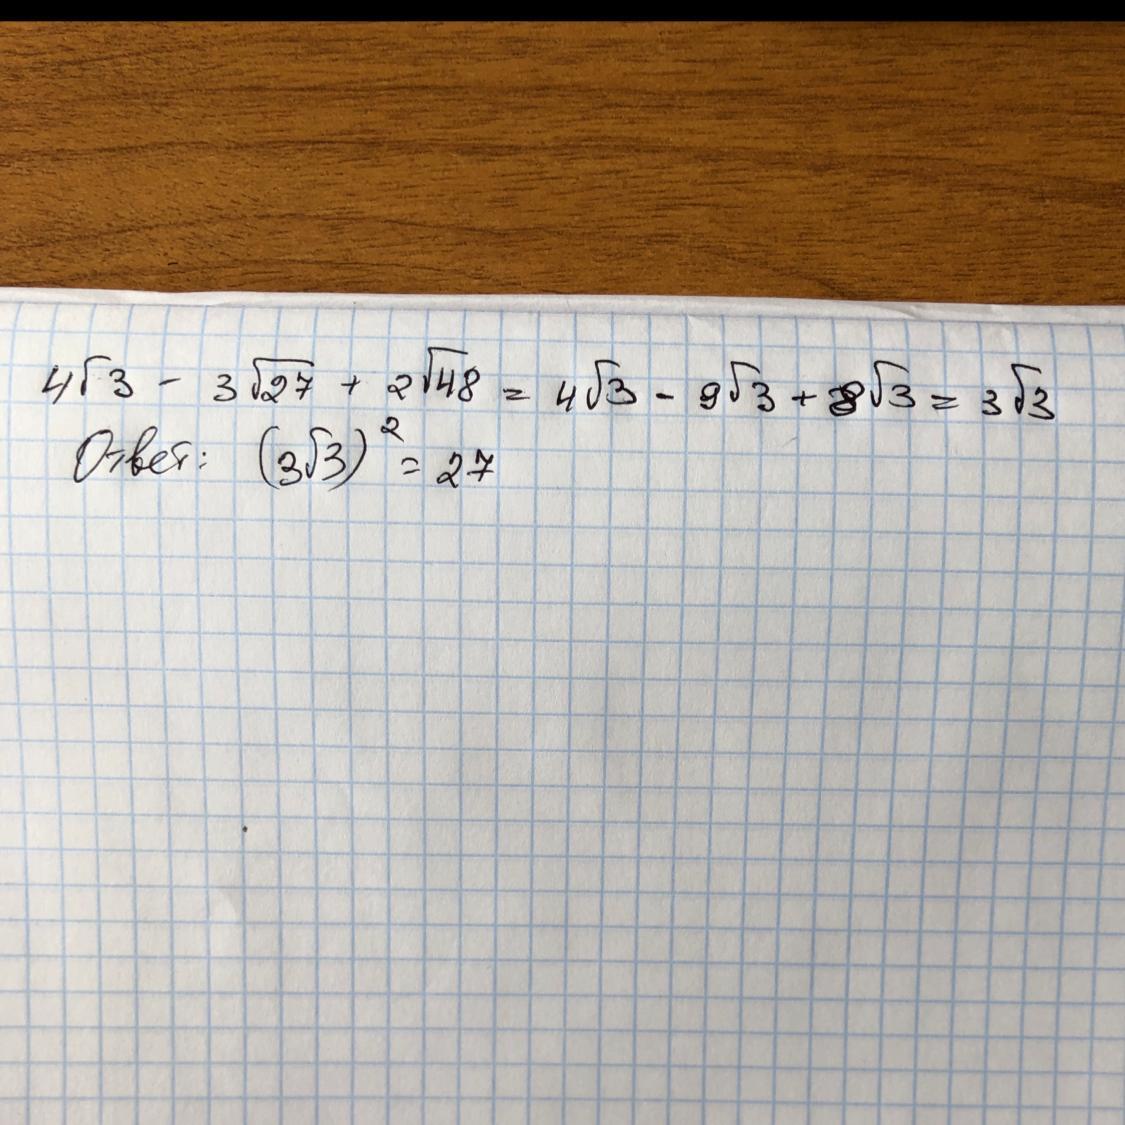 4√3 - 3√27 + 2√48 = 4√3 - 9√3 + 8√3 = 3√3
Ответ: (3√3)² = 27